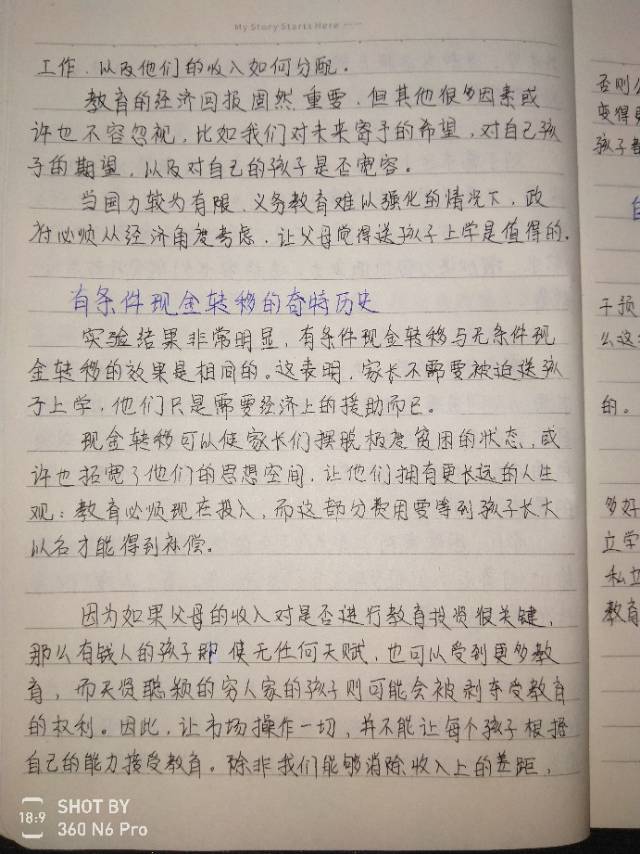 My Story Starts Here
工作、以及他们的收入如何分配。
教育的经济回报固然重要,但其他很多因素或
许也不容忽视,比如我们对未来寄予的希望,对自己孩
子的期望,以及对自己的孩子是否宽容。
当国力较为有限、义务教育难以强化的情况下,政
府必须从经济角度考虑,让父母觉得送孩子上学是值得的。
有条件现金转移的奇特历史
实验结果非常明显,有条件现金转移与无条件现
金转移的效果是相同的。这表明,家长不需要被迫送孩
子上学,他们只是需要经济上的援助而已。
现金转移可以使家长们摆脱极度贫困的状态,或
许也拓宽了他们的思想空间,让他们拥有更长远的人生
观:教育必须现在投入,而这部分费用要等到孩子长大
以后才能得到补偿。
因为如果父母的收入对是否进行教育投资很关键,
那么有钱人的孩子即使无任何天赋,也可以受到更多教
育,而天资聪颖的穷人家的孩子则可能会被剥夺受教育
的权利。因此,让市场操作一切,并不能让每个孩子根据
自己的能力接受教育。除非我们能够消除收入上的差距,
否则
变得
孩子
干预
么这
的。
多好
立学
私立
教育
18:9
SHOT BY
360 N6 Pro